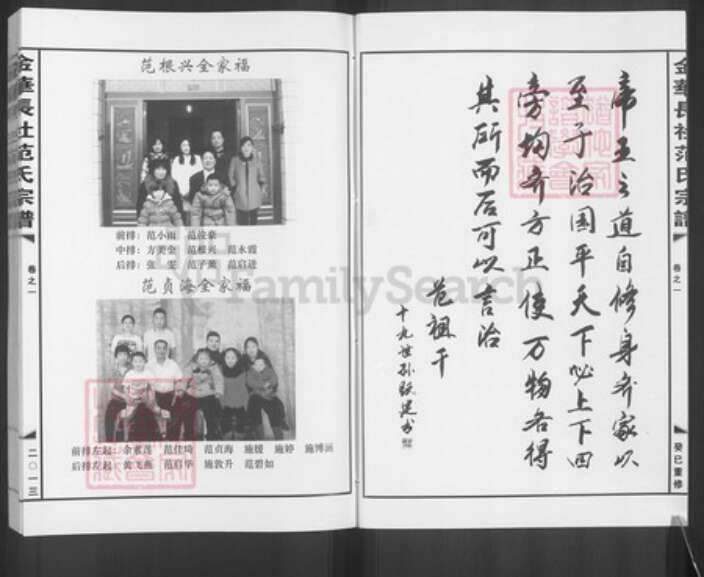 金華長社范氏宗譜
卷之一
癸巳重修
帝王之道自修身齐家以
至于治国平天下必上下四
旁均齐方正使万物各得
其所而后可以言治
范祖干
十九世孙
范根兴全家福
前排：范小雨 范俊豪
中排：方美金 范根兴 范永霞
后排：张雯 范子薰 范启进
范贞海全家福
前排左起：余素莲 范佳琦 范贞海 施媛 施婷 施博涵
后排左起：黄飞燕 范启华 施敦升 范碧如
金華長社范氏宗譜
卷之一
二〇一三
FamilySearch